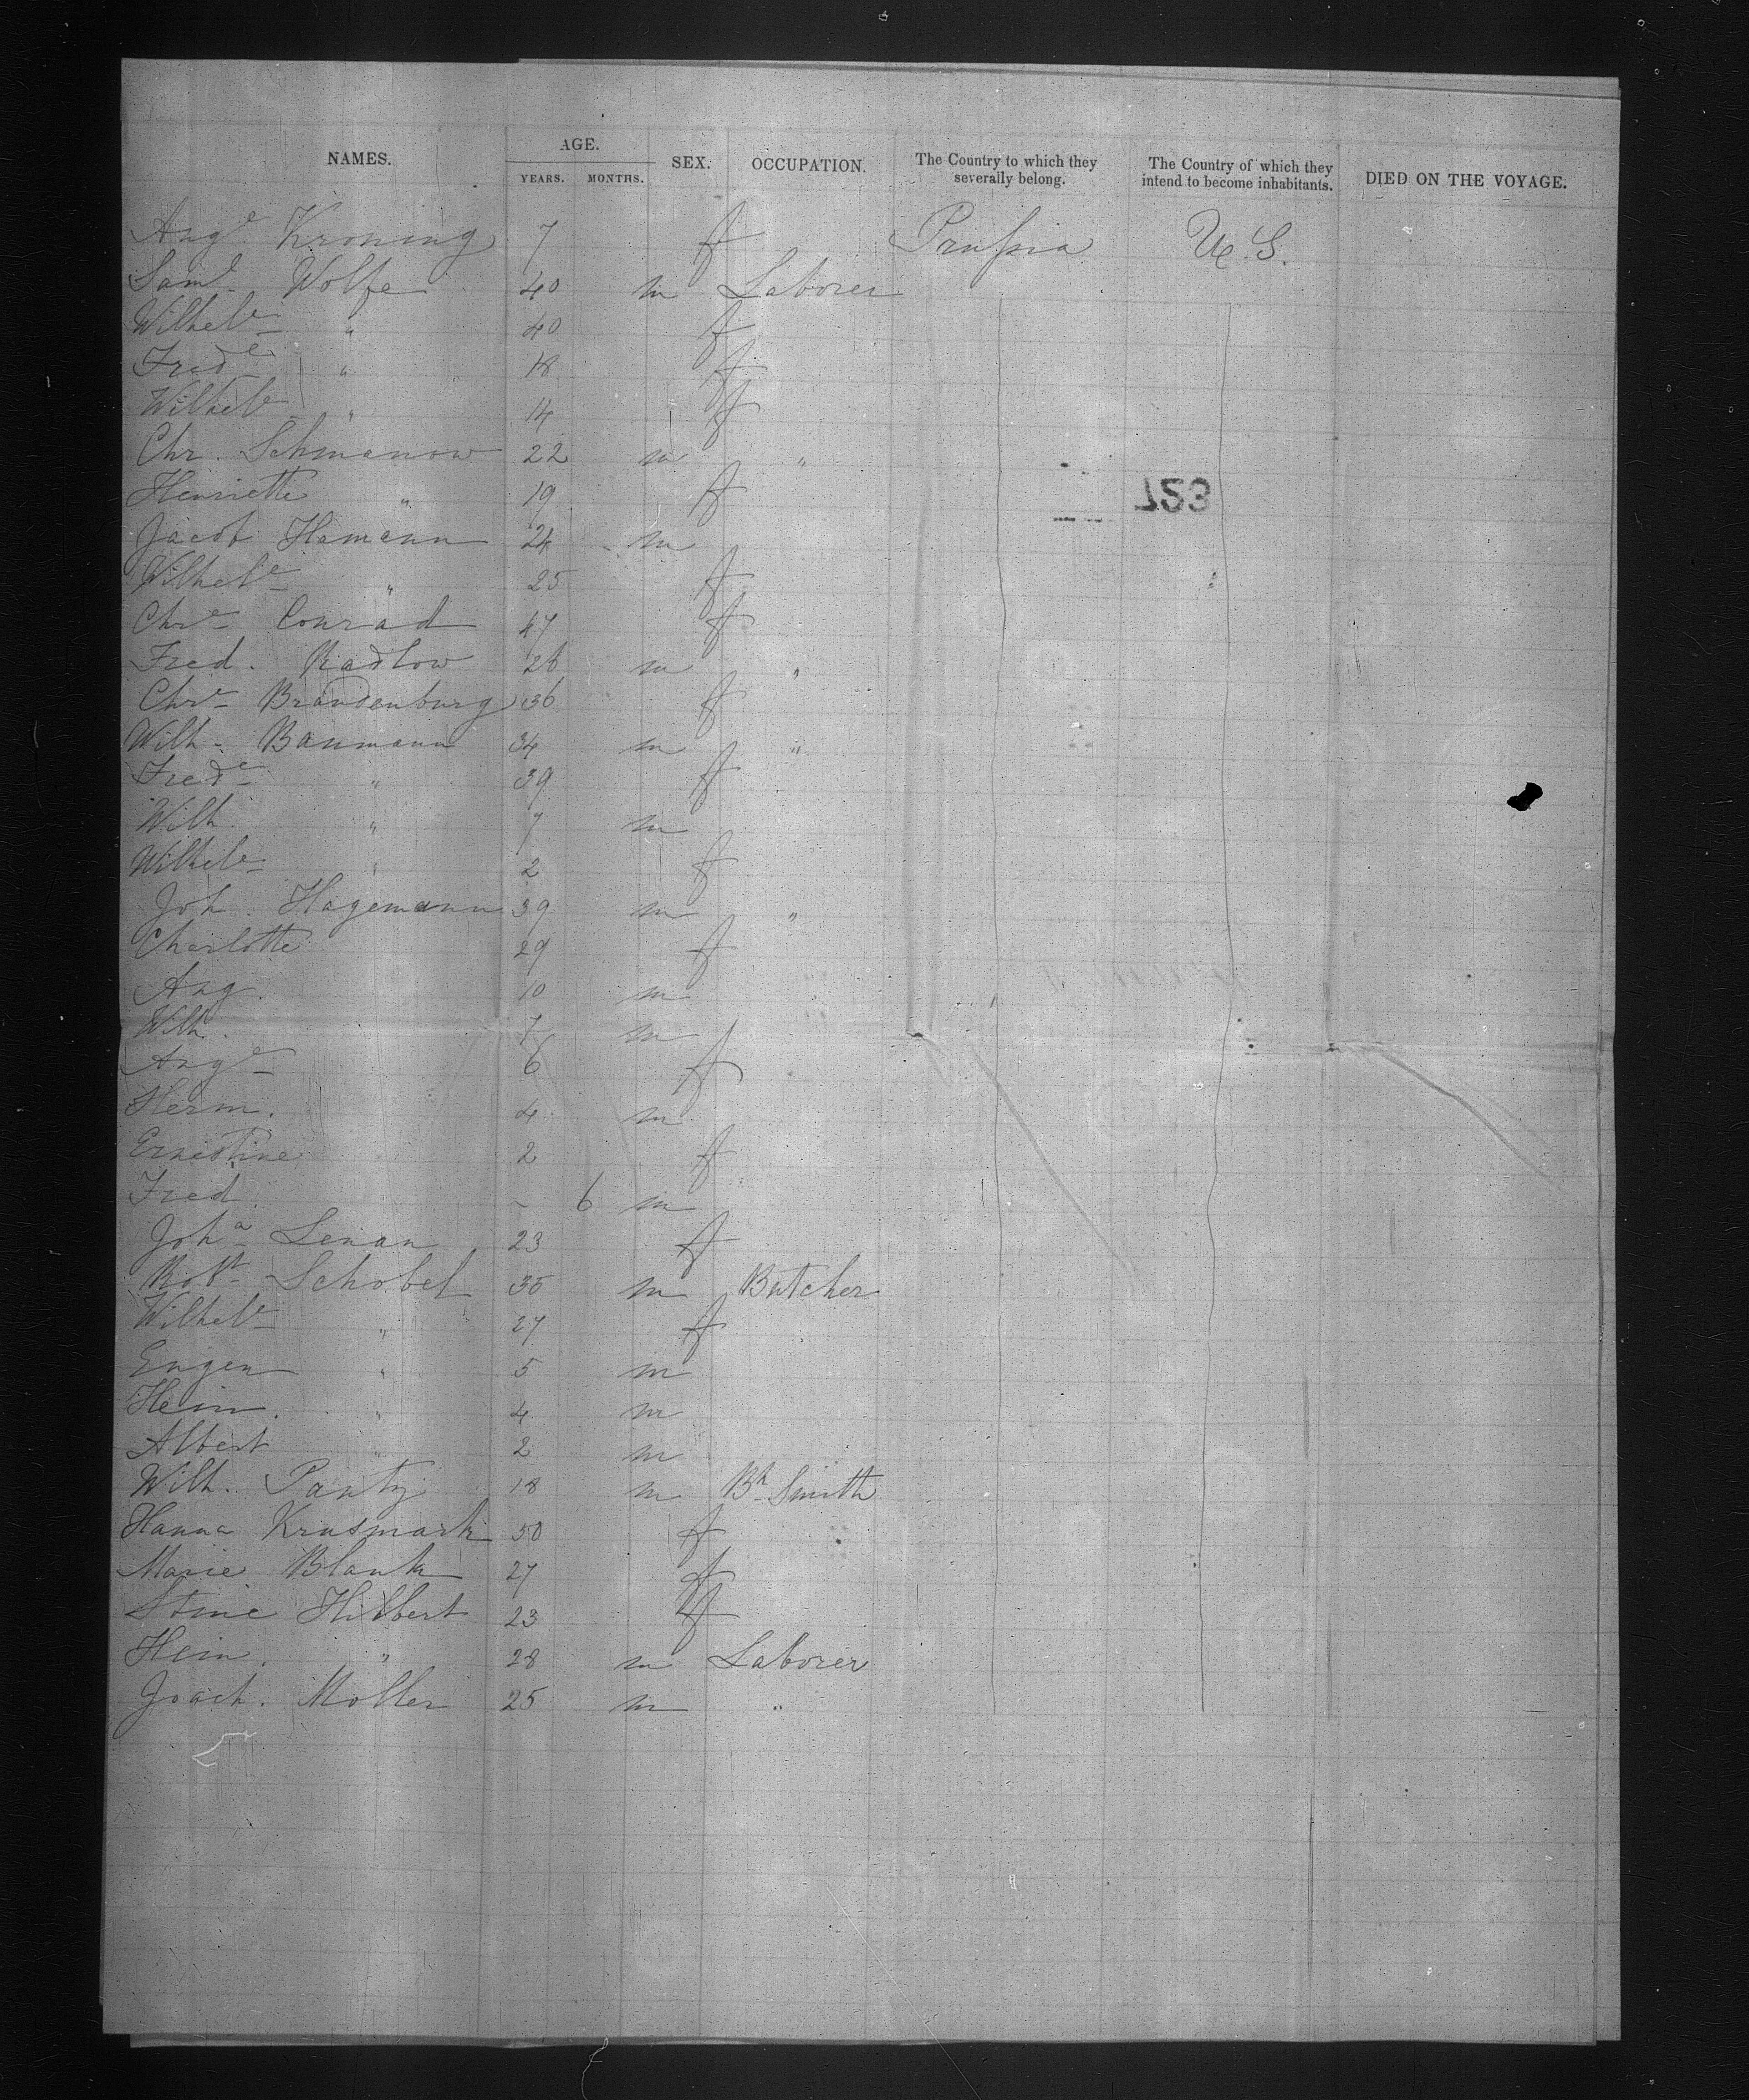 NAMES. AGE. SEX. OCCUPATION. The Country to which they severally belong. The Country of which they intend to become inhabitants. DIED ON THE VOYAGE.
YEARS. MONTHS.
Auge Kroning 7 f Prussia U.S.
Saml Wolfe 40 m Laborer
Wilhele " 40 f
Frede " 18 f
Wilhele " 14 f
Chr. Schmanow 22 m "
Henriette " 19 f
Jacob Hamann 24 m
Wilhele " 25 f
Chre Conrad 47 f
Fred. Radlow 26 m "
Chre Brandenburg 36 f
Wilh. Baumann 34 m "
Frede " 39 f
Wilh. " 7 m
Wilhele " 2 f
Joh. Hagemann 39 m "
Charlotte 29 f
Aug. 10 m
Wilh. 7 m
Auge 6 f
Herm. 4 m
Ernestine 2 f
Fred. - 6 m
Joha Lenan 23 f
Robt Schobel 35 m Butcher
Wilhele " 27 f
Eugen " 5 m
Hein. " 4 m
Albert " 2 m
Wilh. Pantz 18 m Bh Smith
Hanna Krusmark 50 f
Marie Blank 27 f
Stine Hilbert 23 f
Hein. " 28 m Laborer
Joach. Moller 25 m "
723